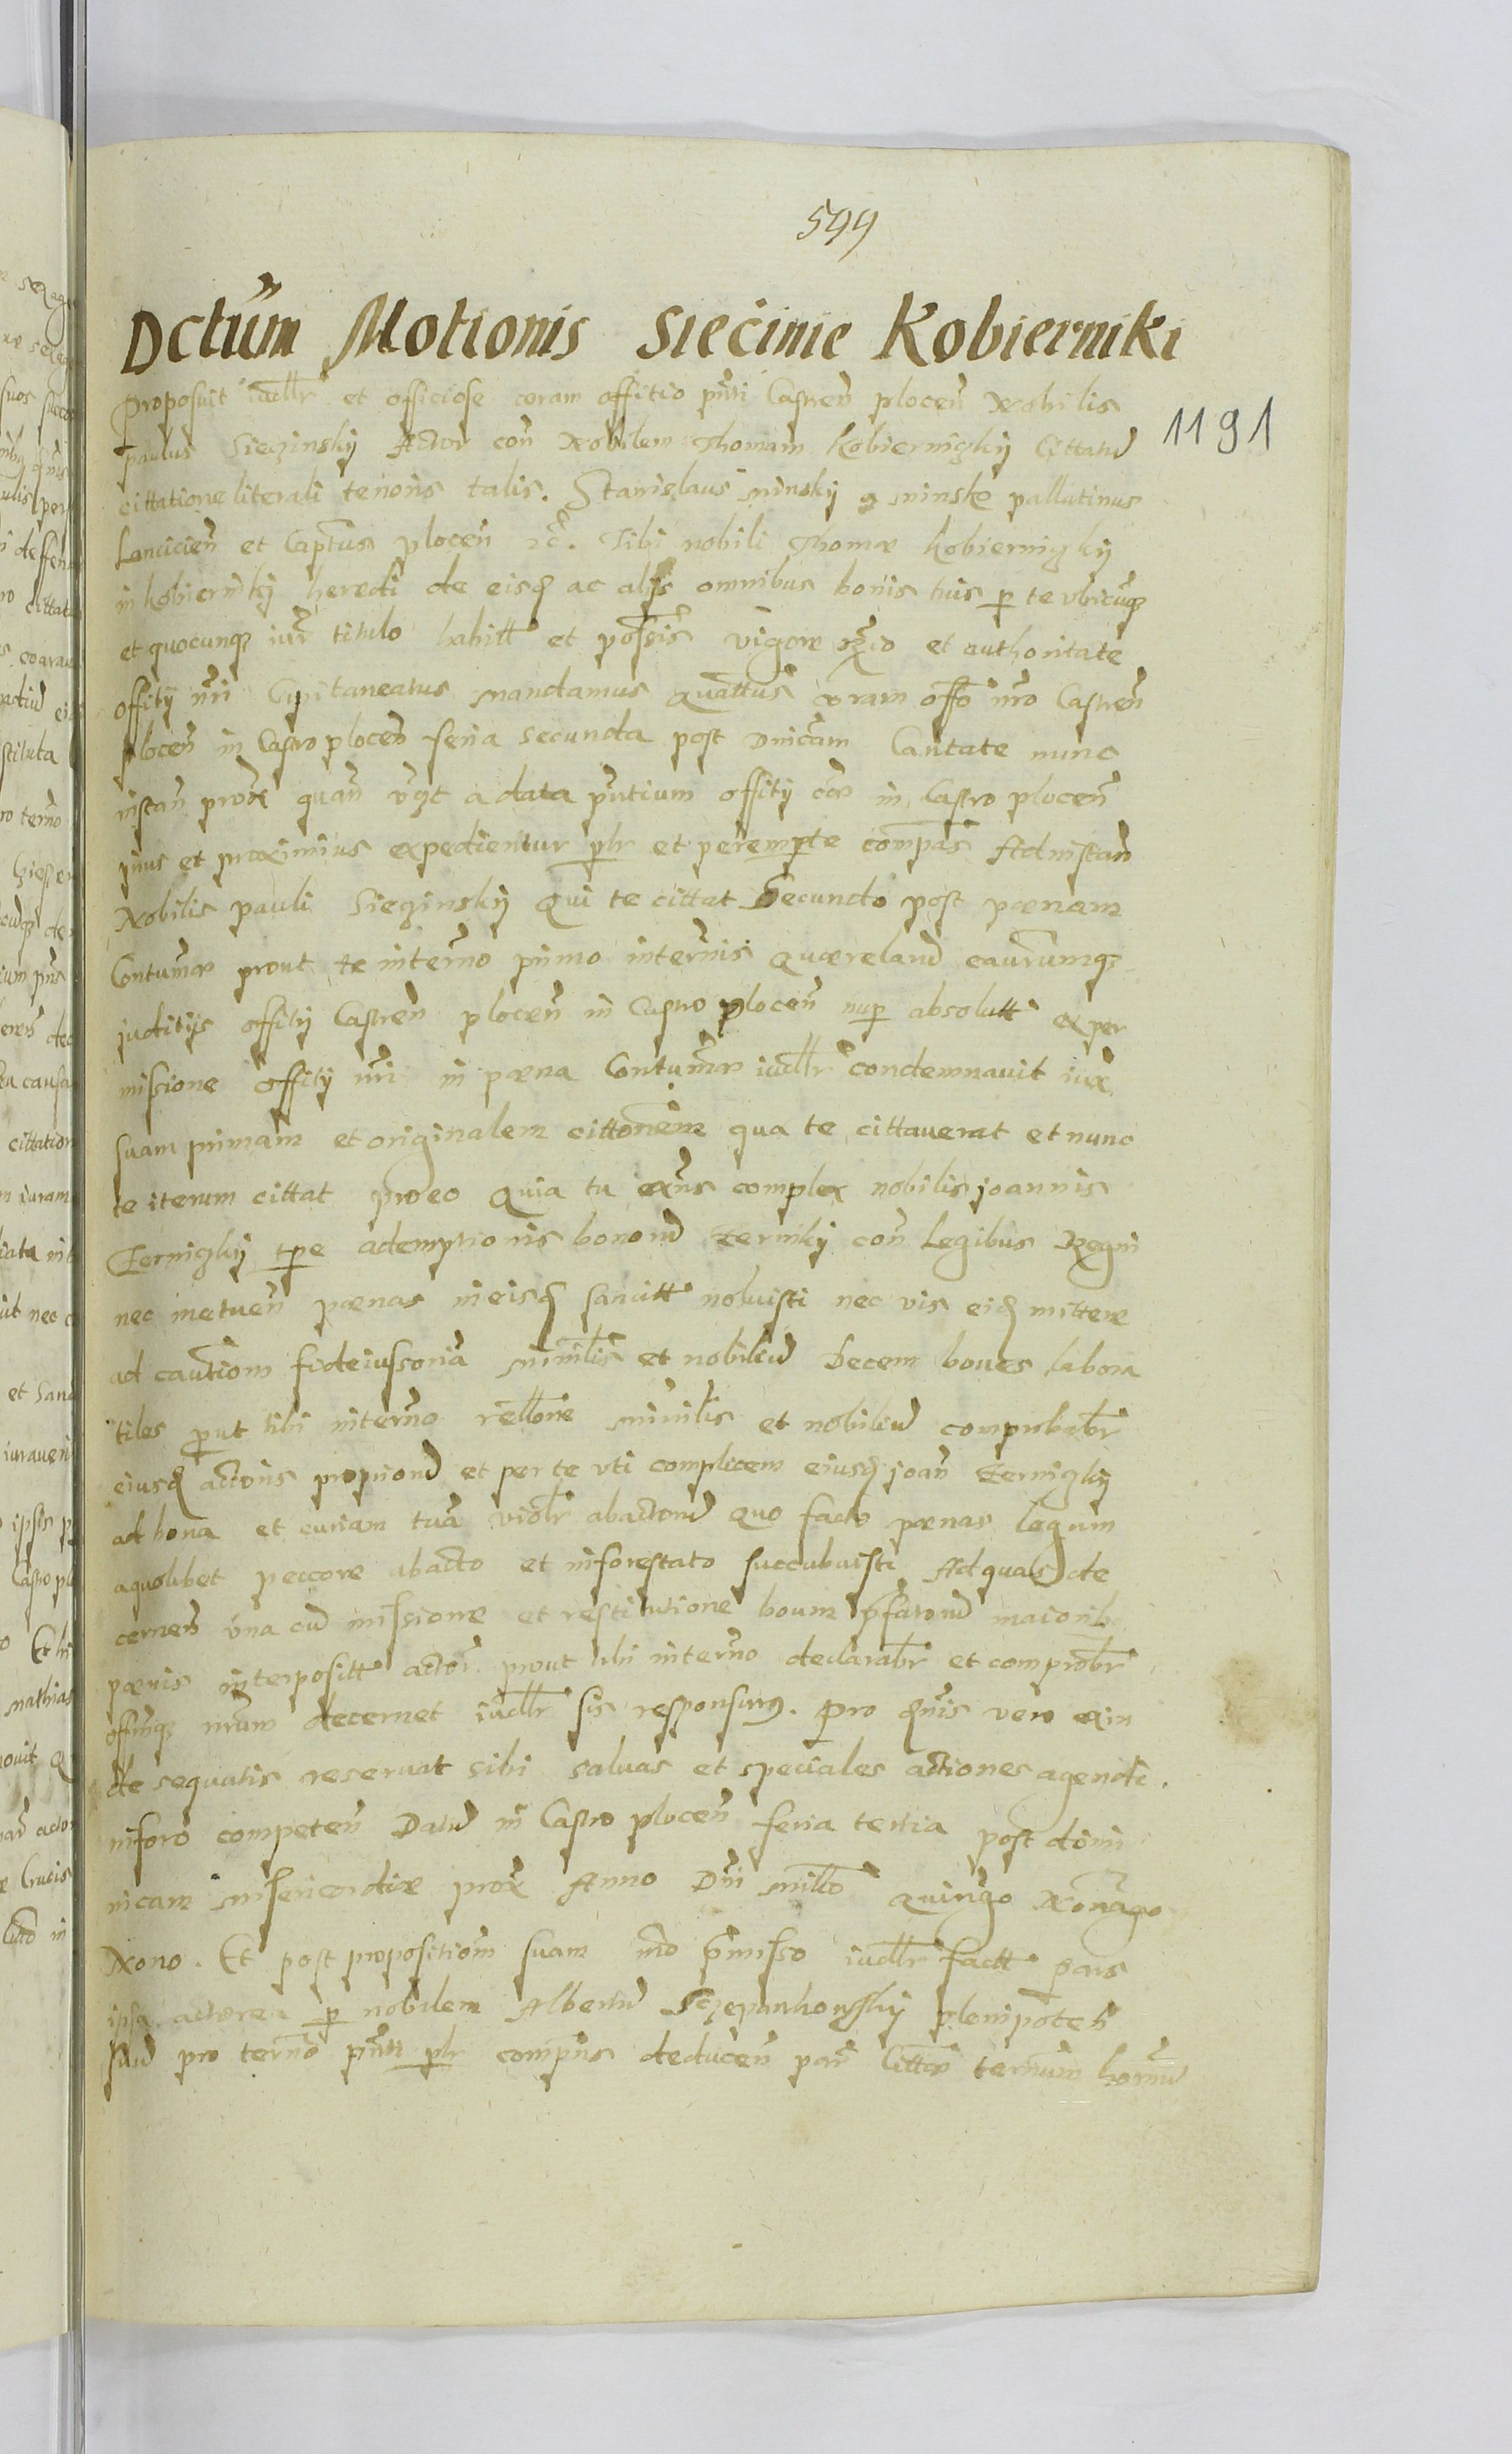 599
Dctum Motionis Siecinie Kobierniki
1191
Proposuit iudllr et officiose coram offitio pnti Castren plocen Nobilis
paulus Sieczinskij Actor con Nobilem Thomam Kobierniczkij Cittatu
cittatione literali tenoris talis. Stanislaus Minskij a Minske pallatinus
Lancicien et Captus plocen rc. Tibi nobili Thomæ Kobierniczkij
in kobiernikij heredi de eisd ac alijs omnibus bonis tuis p te vbicuq
et quocunq iur titulo habitt et possis vigore et authoritate
offitij nri Capitaneatus mandamus quattus coram offo nro Castren
plocen in Castro plocen feria secunda post dnicam Cantate nunc
instan prox quan a data pntium offitij in Castro plocen
prius et proximius expedientur plr et perempte compas Ad instan
Nobilis pauli Sieczinskij qui te cittat Secundo post pœnam
Contumæ prout te in termo primo in termis quærelaru caurumq
juditijs offitij Castren plocen in Castro plocen nup absolutt ex per
missione offitij nri in pœna Contumæ iudllr condemnauit iux
suam primam et originalem cittonem qua te cittauerat et nunc
te iterum cittat pro eo quia tu exns complex nobilis joannis
Czerniczkij tpe ademptionis bonoru Czernikij con Legibus Regni
nec metuen pœnas in eisd sancitt noluisti nec vis eid mittere
ad cautiom fideiussoria minrlis et nobiliu Decem boues labora
tiles put tibi in termo rellone minrlis et nobiliu comprobabr
eiusd actoris proprioru et per te vti complicem eiusd joan Czerniczkij
ad bona et curiam tua violr abactoru quo facto pœnas legum
a quolibet peccore abacto et inforestato succubuisti Ad quas de
cernen vna cu missione et restitutione boum pfatoru maiorib
pœnis interpositt actor prout tibi in termo declarabr et comprobr
offimq nrum decernet iudllr sis responsurus. Pro vero exin
de sequutis reseruat sibi saluas et speciales actiones agendi
in foro competen Datu in Castro plocen feria tertia post domi
nicam misericordiæ prox Anno Dni millo quingo Nonago
Nono. Et post propositiom suam mo pmisso iudllr factt pars
ipsa actorea p nobilem Albertu Szczepankowskij plenipoten
suu pro termo pnti plr compns deducen par termum